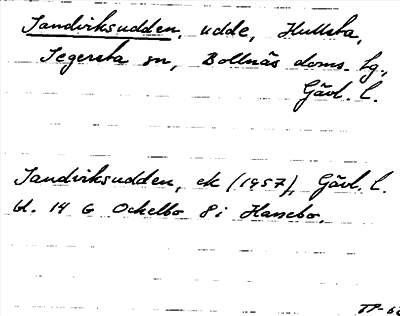 Sandviksudden, udde, Hullsta,
Segersta sn, Bollnäs doms. tg.,
Gävl. l.
Sandviksudden, ek (1957), Gävl. l.
bl. 14 G Ockelbo 8 i Hansebo.